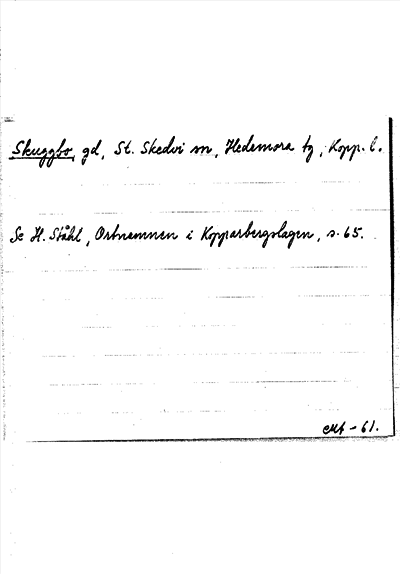 Skuggbo, gd, St. Skedvi sn, Hedemora tg, Kopp. l.
Se H. Ståhl, Ortnamnen i Kopparbergslagen, s. 65.
-61.